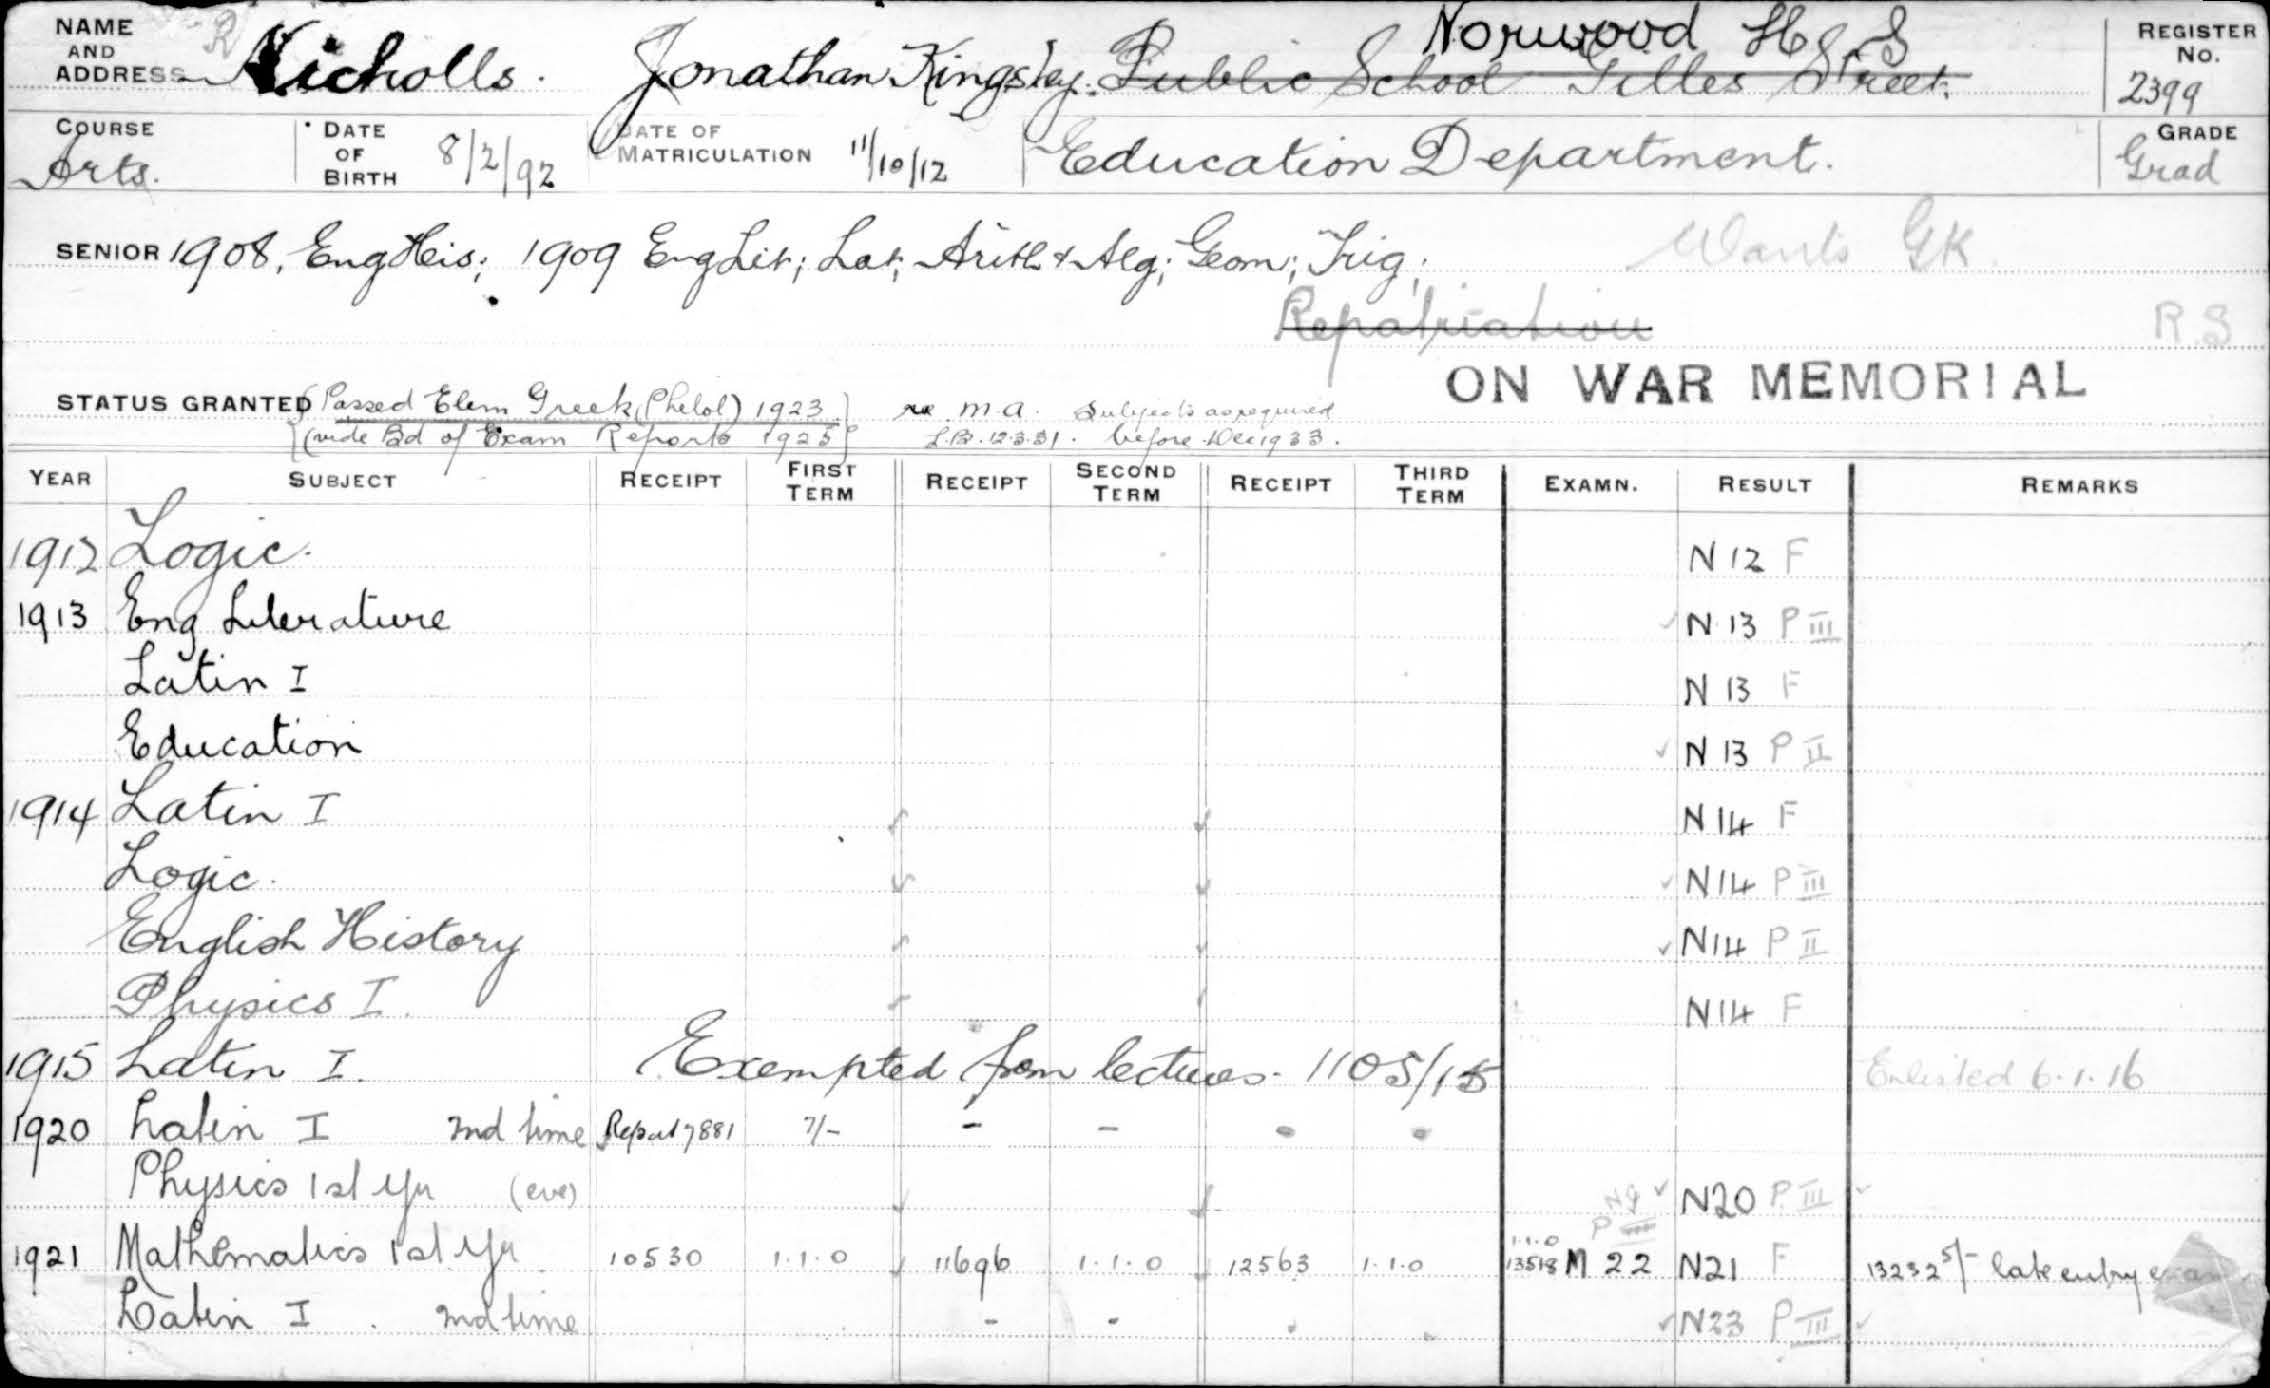 NAME AND ADDRESS Nicholls. Jonathan Kingsley. Norwood H.S
Public School Gilles Street.
REGISTER No. 2399
COURSE Arts. DATE OF BIRTH 8/2/92 DATE OF MATRICULATION 11/10/12 Education Department. GRADE Grad
SENIOR 1908, Eng His; 1909 Eng Lit; Lat; Arith & Alg; Geom; Trig; Wants GK
Repatriation R.S
ON WAR MEMORIAL
STATUS GRANTED Passed Elem Greek (Philol) 1923. re M.A. Subjects as required
(vide Bd of Exam Reports 1925) L.B. 12.3.31. before Dec 1933.
YEAR SUBJECT RECEIPT FIRST TERM RECEIPT SECOND TERM RECEIPT THIRD TERM EXAMN. RESULT REMARKS
1912 Logic. N 12 F
1913 Eng Literature ✓ N 13 P III
Latin I N 13 F
Education ✓ N 13 P II
1914 Latin I ✓ ✓ N 14 F
Logic. ✓ ✓ ✓ N 14 P III
English History ✓ ✓ ✓ N 14 P II
Physics I. ✓ ✓ N 14 F
1915 Latin I. Exempted from lectures. 1105/15 Enlisted 6.1.16
1920 Latin I 2nd time Repat 7881 7/- - - - -
Physics 1st Yr (eve) ✓ ✓ ✓ N20 P III ✓
P
1921 Mathematics 1st Yr 10530 1.1.0 ✓ 11696 1.1.0 ✓ 12563 1.1.0 1.1.0 13518 M 22 N21 F 13232 5/- late entry exam
Latin I. 2nd time - - - - ✓ N23 P III ✓